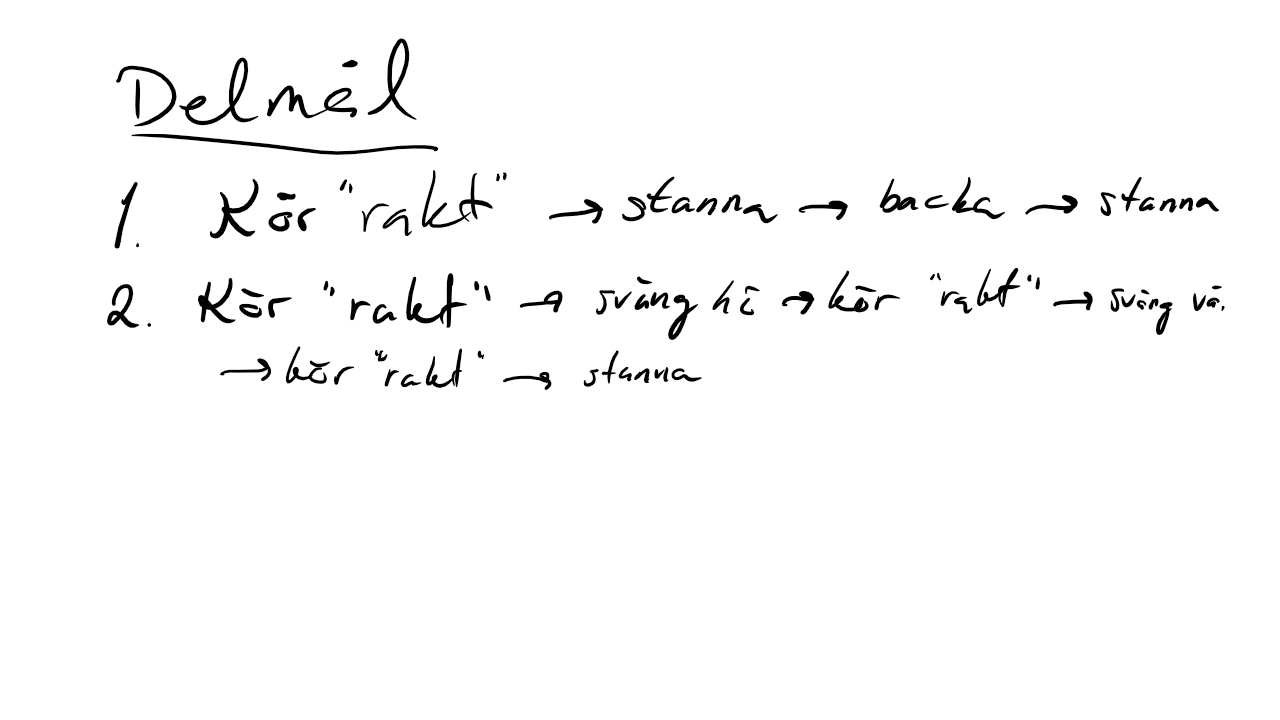 Delmål
1. Kör "rakt" → stanna → backa → stanna
2. Kör "rakt" → sväng hö → kör "rakt" → sväng vä.
→ kör "rakt" → stanna